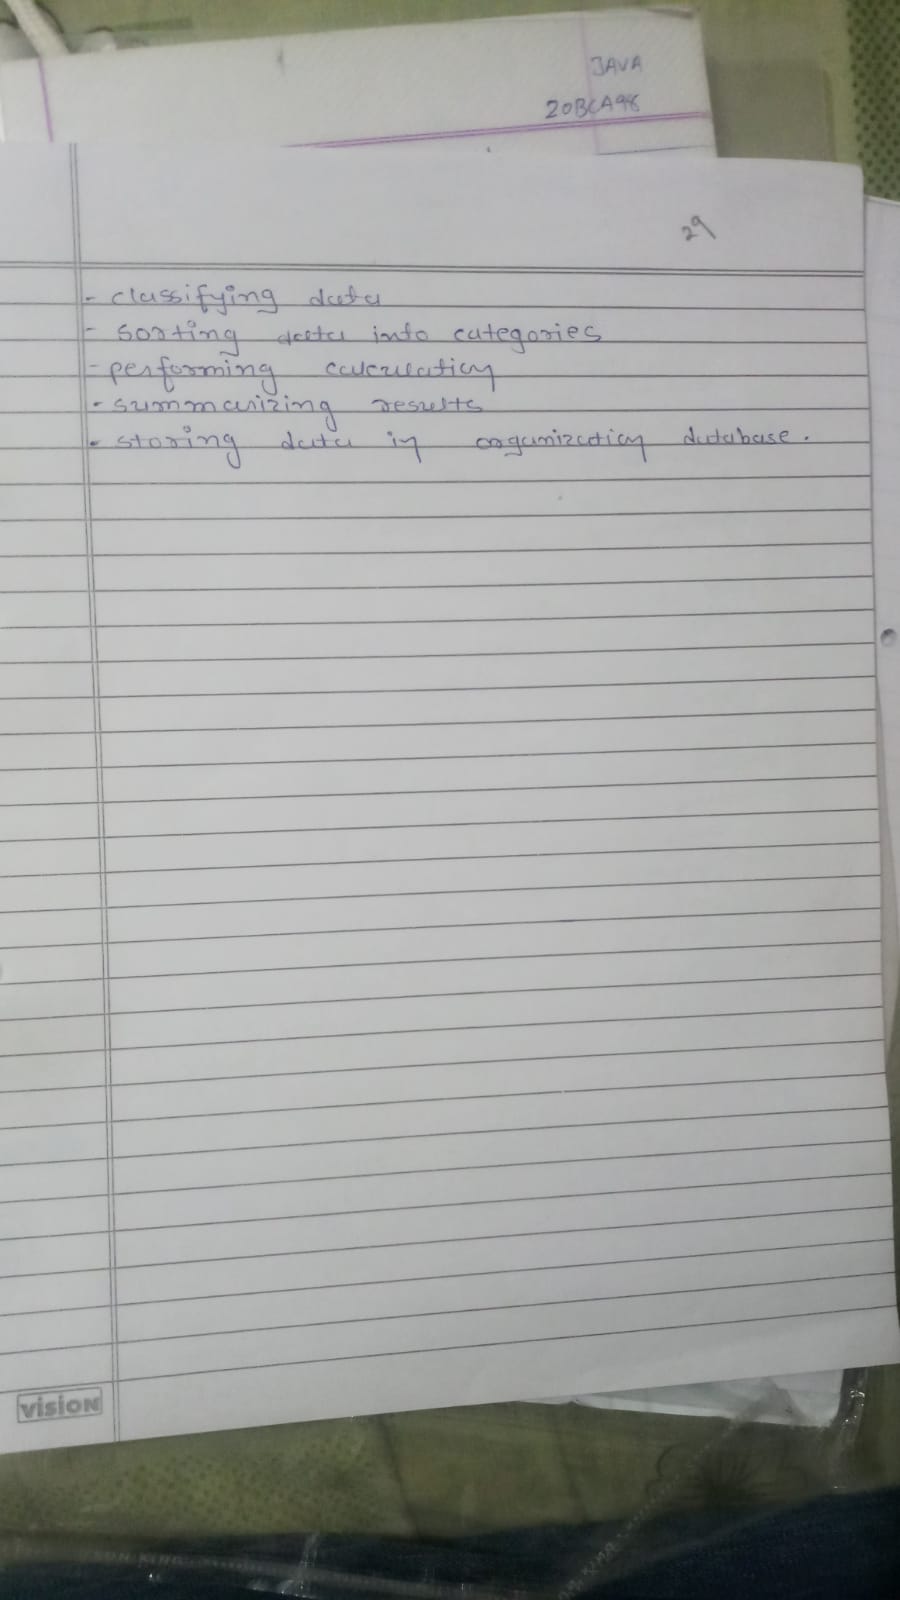 JAVA
20BCA98
29
- classifying data
- sorting data into categories
- performing calculation
- summarizing results
- storing data in organization database.
vision